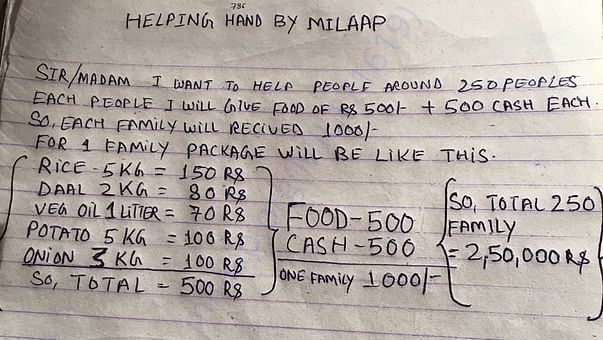 786
HELPING HAND BY MILAAP
SIR/MADAM I WANT TO HELP PEOPLE AROUND 250 PEOPLES
EACH PEOPLE I WILL GIVE FOOD OF R$ 500/- + 500 CASH EACH.
SO, EACH FAMILY WILL RECIVED 1000/-
FOR 1 FAMILY PACKAGE WILL BE LIKE THIS.
RICE - 5 KG = 150 R$
DAAL 2 KG = 80 R$
VEG OIL 1 LITTER = 70 R$
POTATO 5 KG = 100 R$
ONION 3 KG = 100 R$
SO, TOTAL = 500 R$
FOOD - 500
CASH - 500
ONE FAMILY 1000/-
SO, TOTAL 250
FAMILY
= 2,50,000 R$